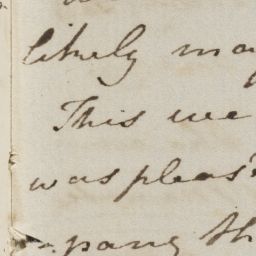 likely
This we
was pleas
pany th